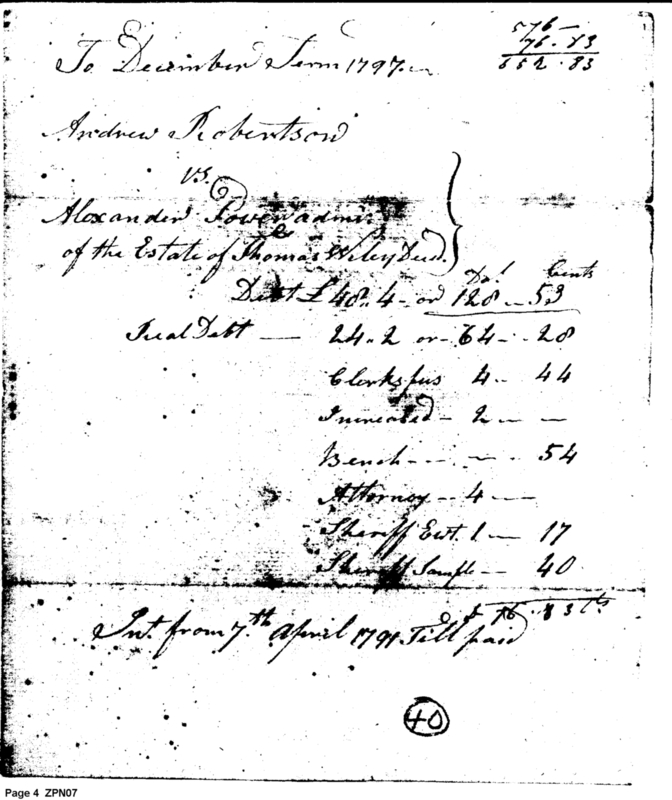 576 -
76 . 83
652 . 83
To December Term 1797.
Andrew Robertson
vs.
Alexander admr.
of the Estate of Thomas Wiley Decd.
Dol Cents
Debt £ 48 .. 4 - or 128 .. 53
Real Debt — 24 .. 2 or - 64 - . 28
Clerks fees 4 .. 44
- 2 — —
Bench - - - - . . 54
Attorney - - 4 - —
Sheriff 1 — 17
Sheriff - - 40
76 . 83 cts
Int. from 7th April 1791 Till paid
40
Page 4 ZPN07